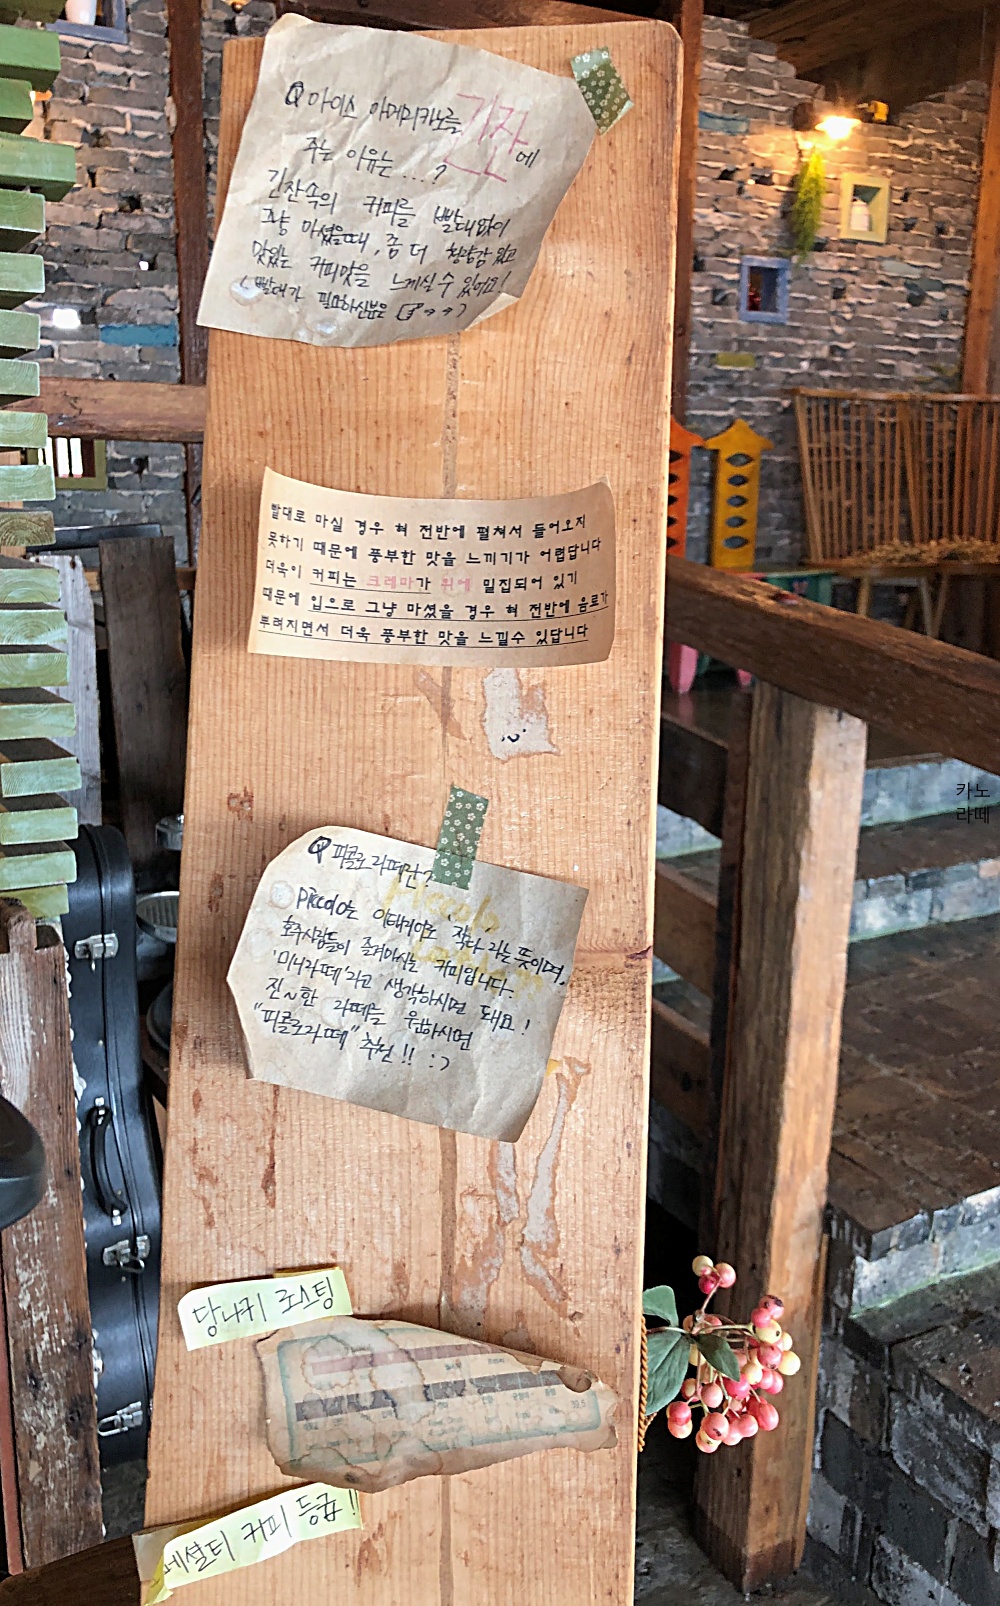 Q 아이스 아메리카노를 긴잔에
주는 이유는...?
긴잔속의 커피를 빨대없이
그냥 마셨을때, 좀 더 청량감 있고
맛있는 커피맛을 느끼실 수 있어요!
(빨대가 필요하신분은 ☞→→)
빨대로 마실 경우 혀 전반에 펼쳐서 들어오지
못하기 때문에 풍부한 맛을 느끼기가 어렵답니다
더욱이 커피는 크레마가 위에 밀집되어 있기
때문에 입으로 그냥 마셨을 경우 혀 전반에 음료가
뿌려지면서 더욱 풍부한 맛을 느낄수 있답니다
Q 피콜로 라떼란?
Piccolo
Piccolo는 이태리어로 작다 라는 뜻이며,
호주사람들이 즐겨마시는 커피입니다.
'미니라떼'라고 생각하시면 돼요!
진~한 라떼를 원하시면
"피콜로라떼" 추천!! :)
당나귀 로스팅
페셜티 커피 등급!!
카노
라떼